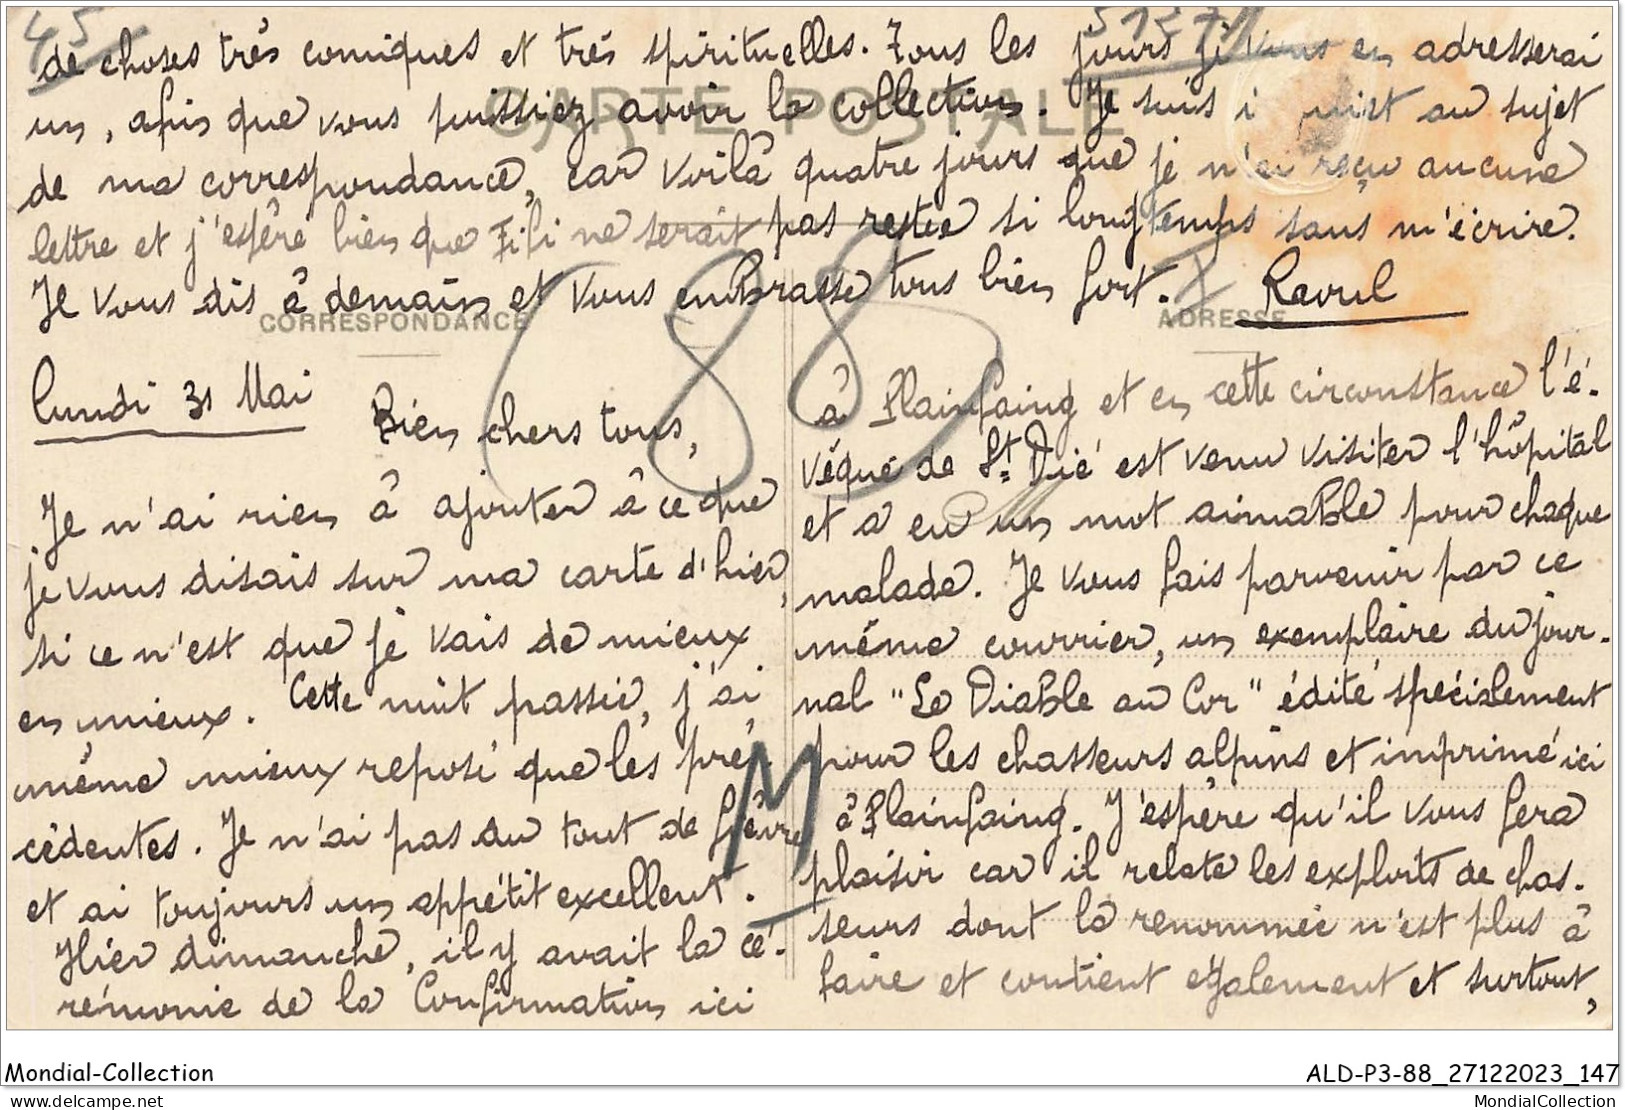 lundi 31 Mai
Bien chers tous,
Je n'ai rien à ajouter à ce que
je vous disais sur ma carte d'hier,
si ce n'est que je vais de mieux
en mieux. Cette nuit passée, j'ai
même mieux reposé que les pré-
cédentes. Je n'ai pas du tout de fièvre
et ai toujours un appétit excellent.
Hier dimanche, il y avait la cé-
rémonie de la Confirmation ici
à Plainfaing et en cette circonstance l'é-
vêque de St Dié est venu visiter l'hôpital
et a eu un mot aimable pour chaque
malade. Je vous fais parvenir par ce
même courrier, un exemplaire du jour-
nal "Le Diable au Cor" édité spécialement
pour les chasseurs alpins et imprimé ici
à Plainfaing. J'espère qu'il vous fera
plaisir car il relate les exploits de chas-
seurs dont la renommée n'est plus à
faire et contient également et surtout,
de choses très comiques et très spirituelles. Tous les jours je vous en adresserai
un, afin que vous puissiez avoir la collection. Je suis au sujet
de ma correspondance, car voilà quatre jours que je n'ai reçu aucune
lettre et j'espère bien que Fifi ne serait pas restée si longtemps sans m'écrire.
Je vous dis à demain et vous embrasse tous bien fort. Raoul
CARTE POSTALE
CORRESPONDANCE
ADRESSE
45
88
M
Mondial-Collection
ALD-P3-88_27122023_147
www.delcampe.net
MondialCollection